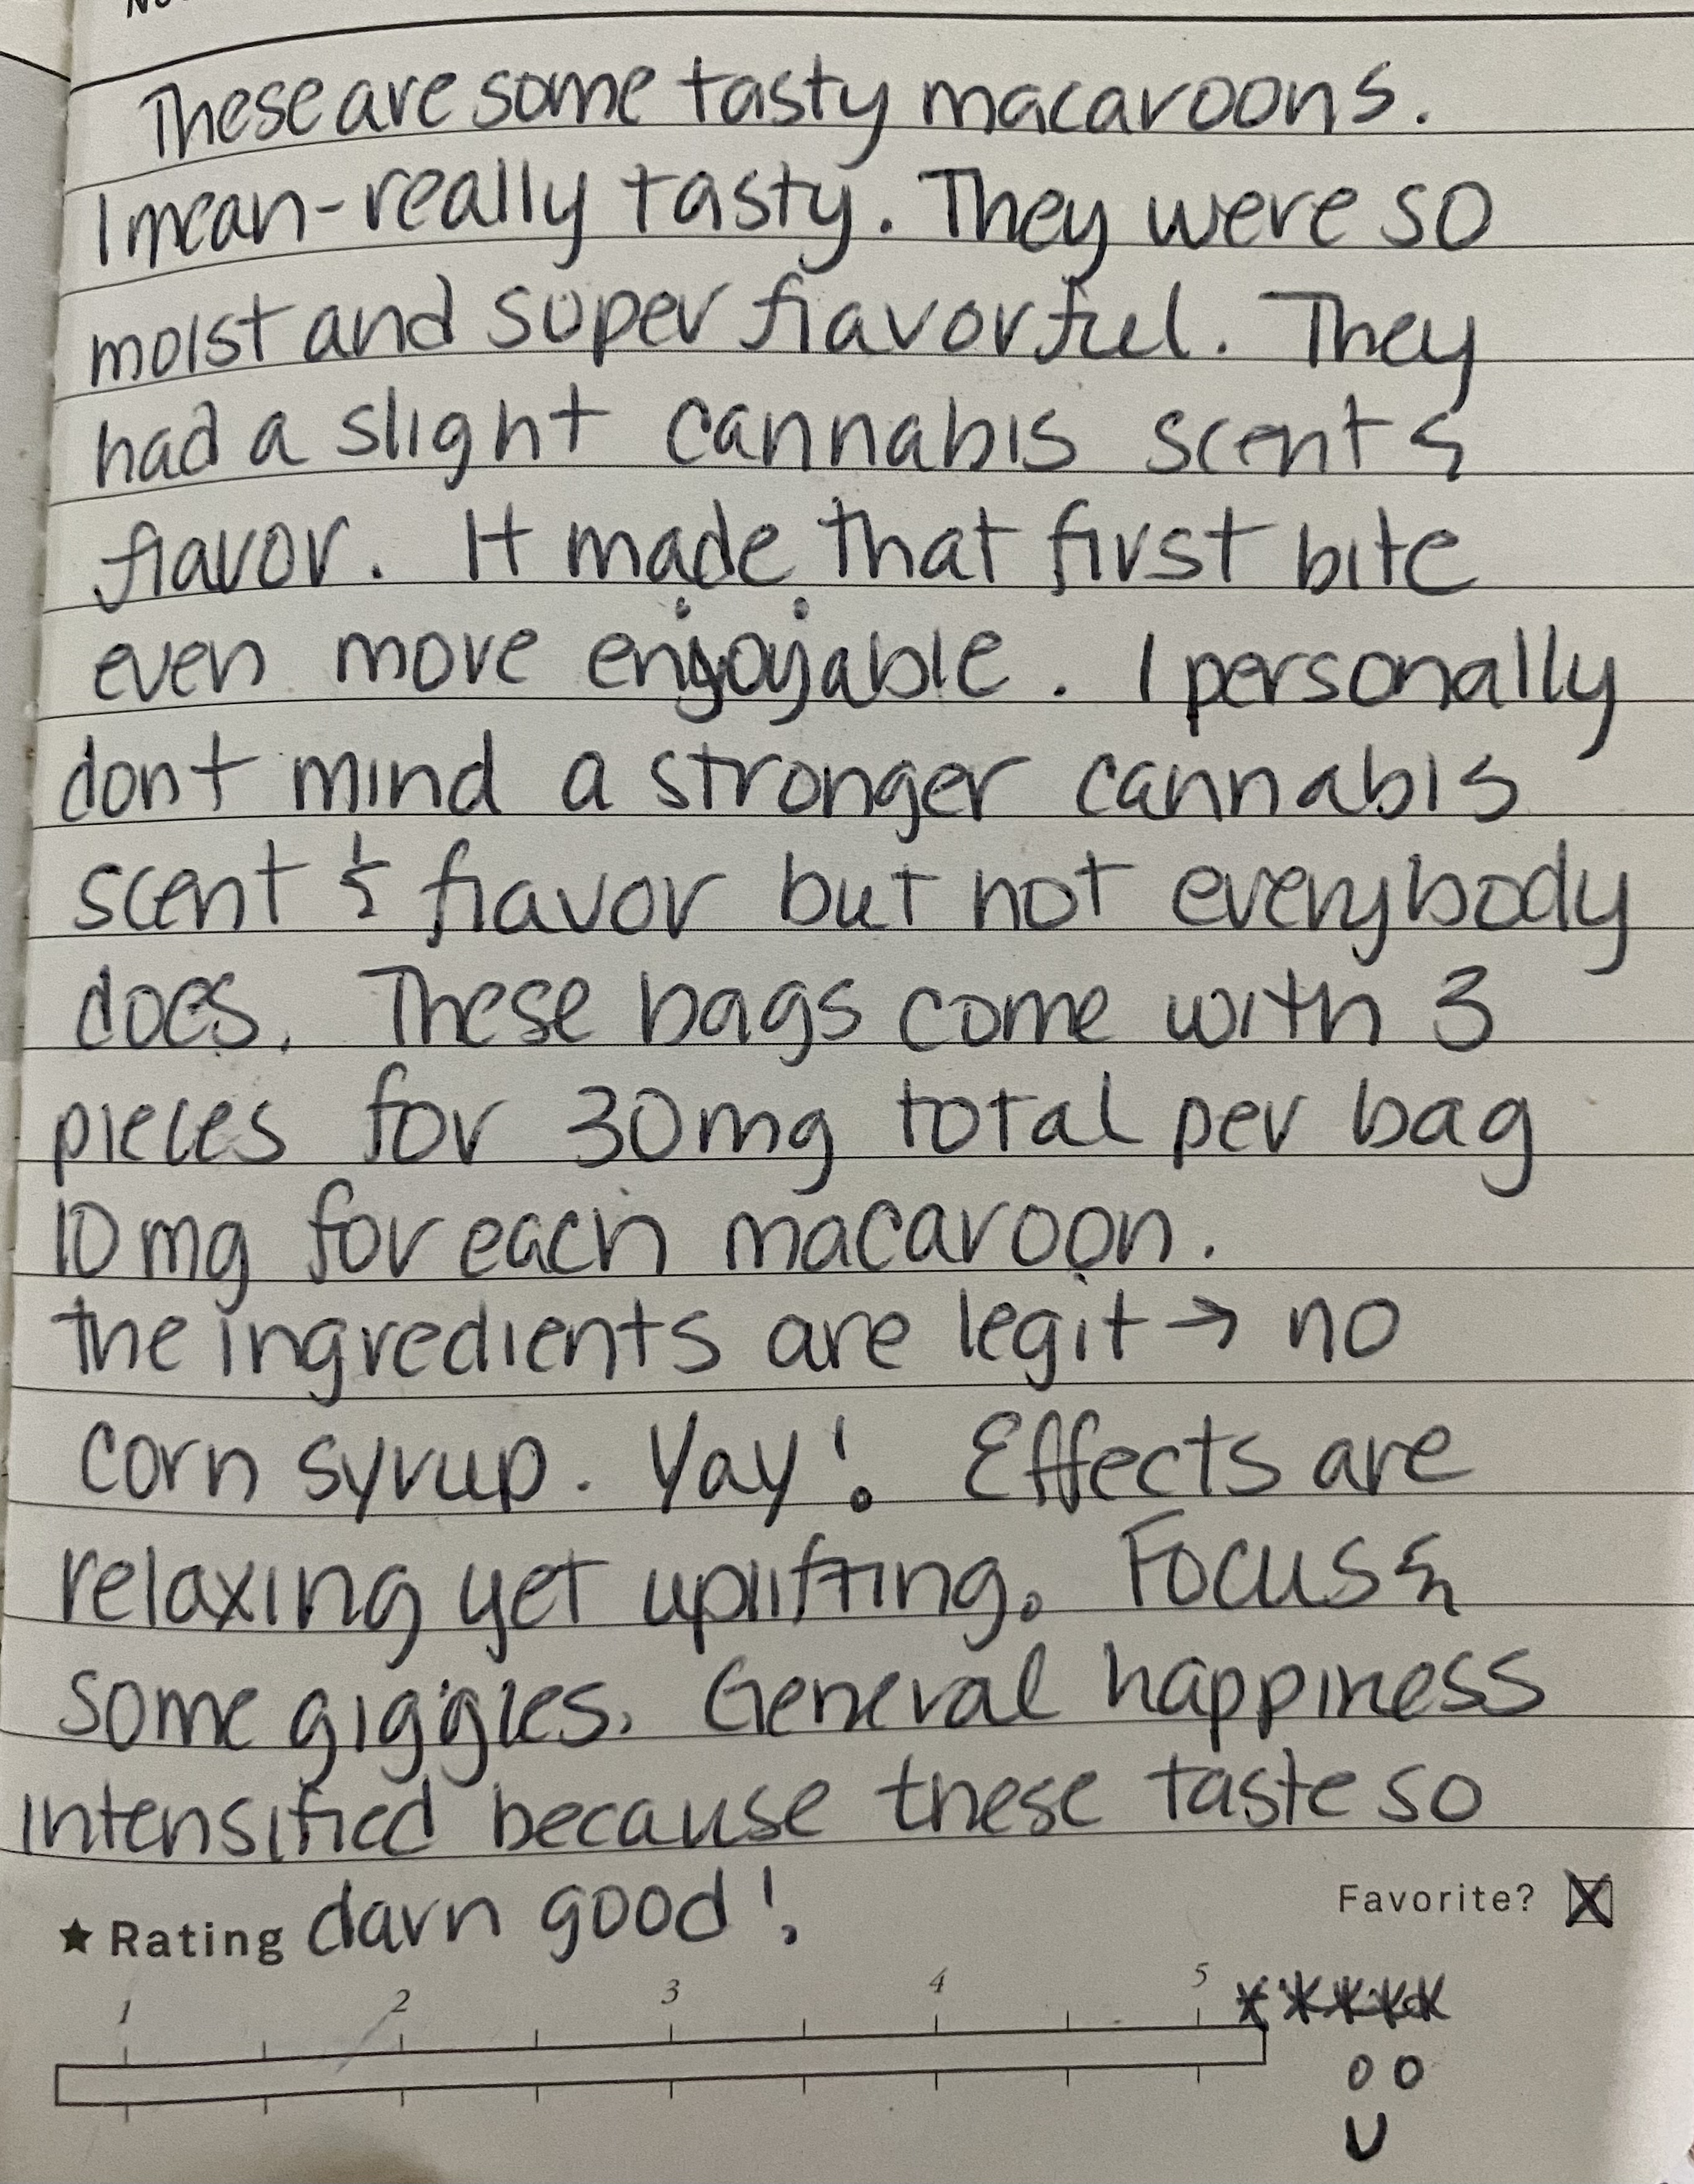 These are some tasty macaroons.
I mean-really tasty. They were so
moist and super flavorful. They
had a slight cannabis scent &
flavor. It made that first bite
even more enjoyable. I personally
dont mind a stronger cannabis
scent & flavor but not everybody
does. These bags come with 3
pieces for 30mg total per bag
10mg for each macaroon.
the ingredients are legit → no
corn syrup. Yay! Effects are
relaxing yet uplifting. Focus &
some giggles. General happiness
intensified because these taste so
darn good!
Favorite? X
★ Rating
1 2 3 4 5 *****